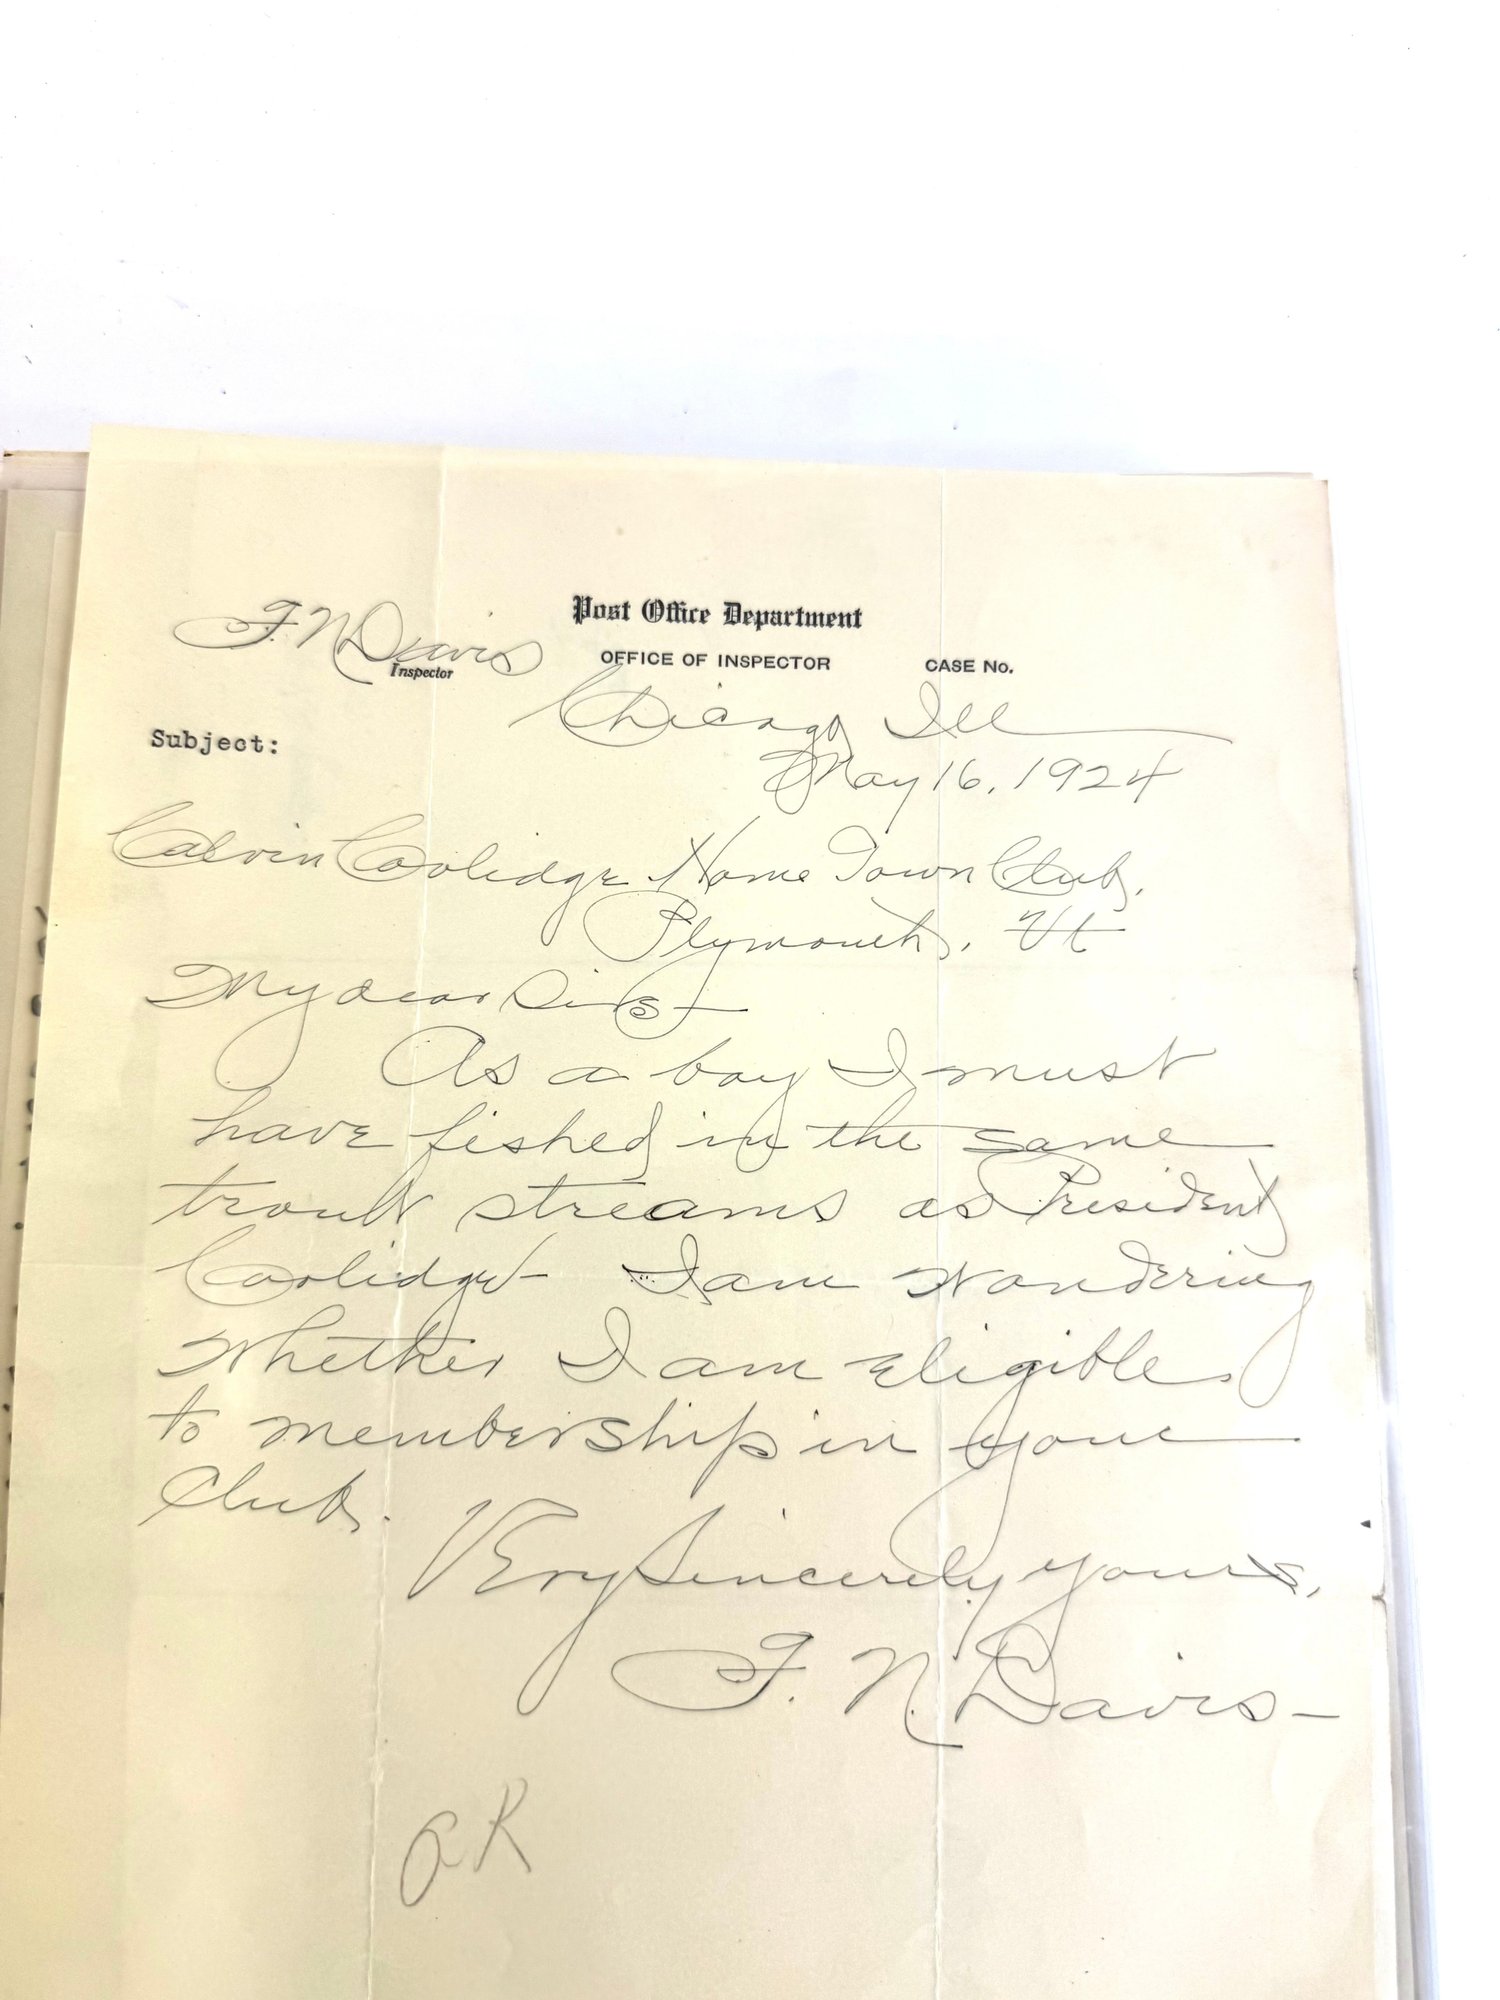 Post Office Department
F. N. Davis
Inspector
OFFICE OF INSPECTOR
CASE No.
Chicago Ill
Subject:
May 16, 1924
Calvin Coolidge Home Town Club,
Plymouth, Vt
My dear Sirs—
As a boy I must
have fished in the same
trout streams as President
Coolidge— I am wondering
whether I am eligible
to membership in your
Club.
Very Sincerely yours,
F. N. Davis—